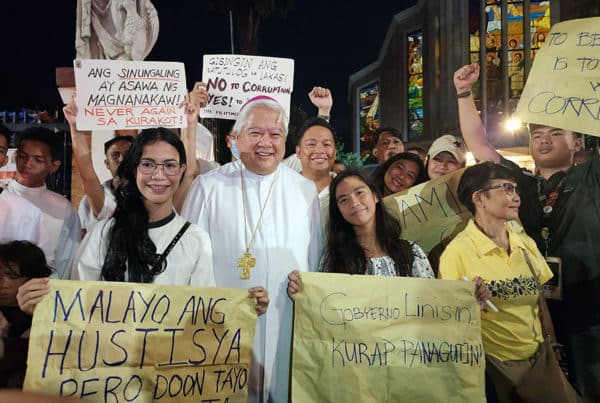 ANG SINUNGALING
AY ASAWA NG
MAGNANAKAW!
NEVER AGAIN
SA KURAKOT!
GISINGIN ANG
NATUTULOG NA LAKAS!
NO TO CORRUPTION
YES!
TO BE
IS TO
CORR
AMI
MALAYO ANG
HUSTISYA
PERO DOON TAYO
GOBYERNO LINISIN,
KURAP PANAGUTIN!